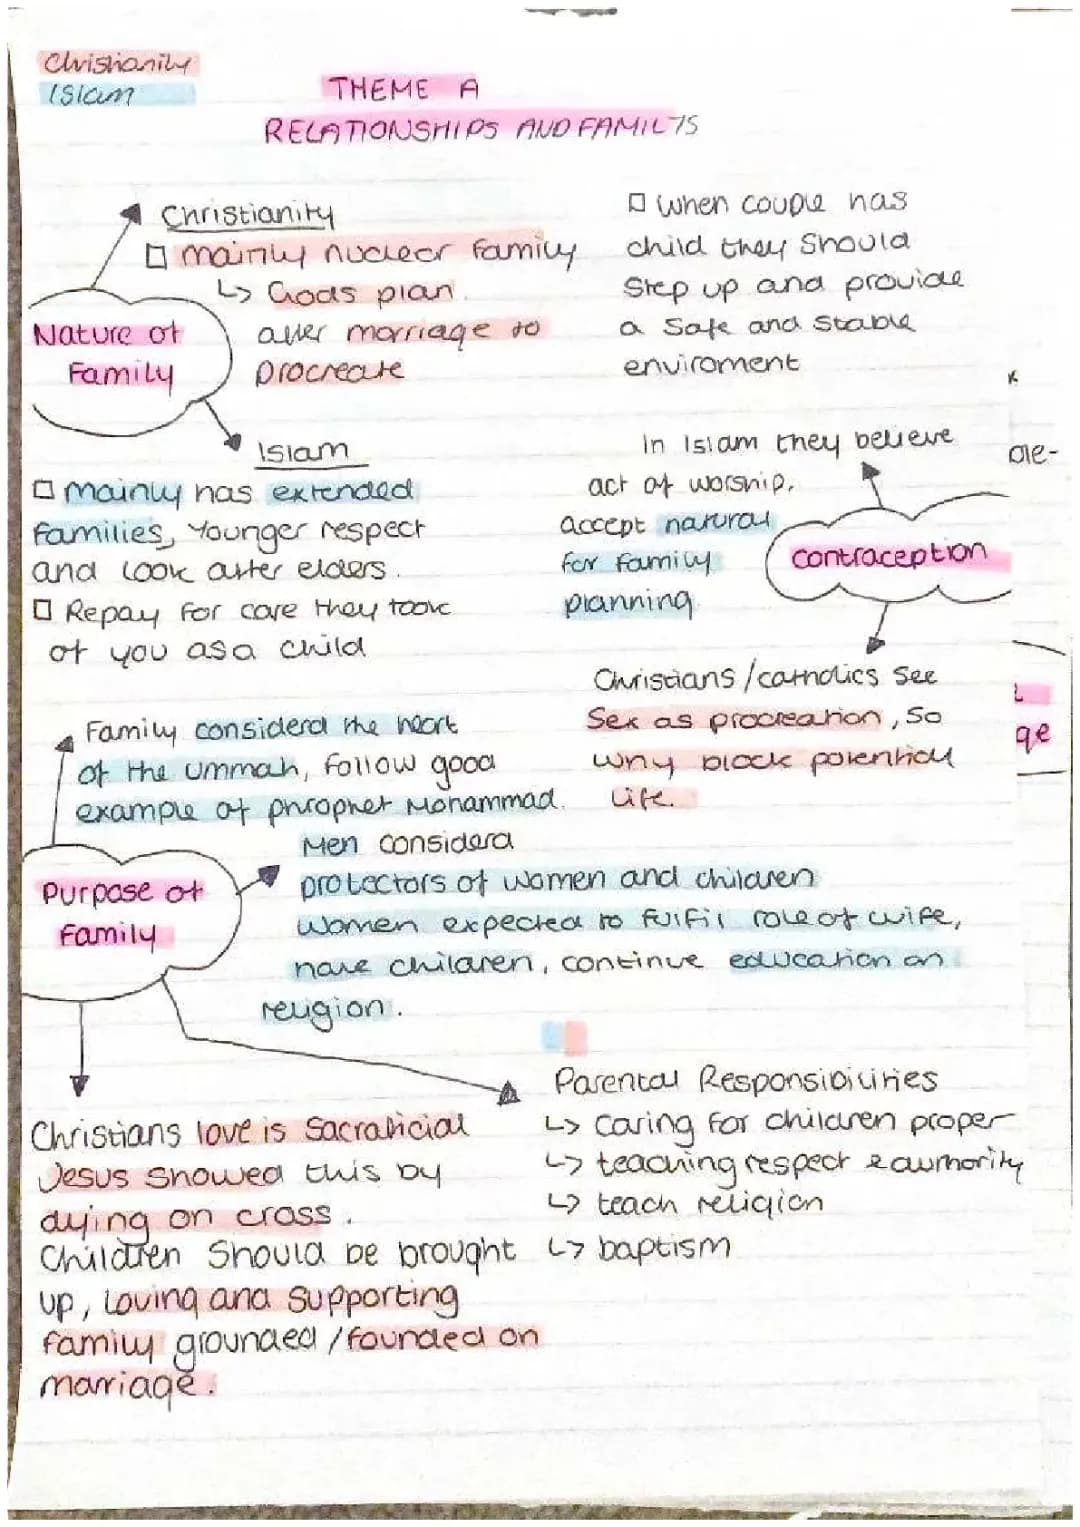 Christianity
Islam
THEME A
RELATIONSHIPS AND FAMILIS
Christianity
mainly nuclear family
↳ Gods plan.
after marriage to
procreate
when couple has
child they should
step up and provide
a safe and stable
enviroment
Nature of
Family
Islam
mainly has extended
families, younger respect
and look after elders.
Repay for care they took
of you as a child
In Islam they believe
act of worship,
accept natural
for family
planning.
contraception
Christians / catholics see
sex as procreation, so
why block potential
life.
Family considerd the heart
of the ummah, follow good
example of phrophet Mohammad.
Purpose of
family
Men considerd
protectors of women and children
women expected to fulfil role of wife,
have children, continue education on
religion.
Christians love is sacraficial
Jesus showed this by
dying on cross.
Children should be brought
up, loving and supporting
family grounded / founded on
marriage.
Parental Responsibilities
↳ caring for children proper
↳ teaching respect & authority
↳ teach religion
↳ baptism
ge